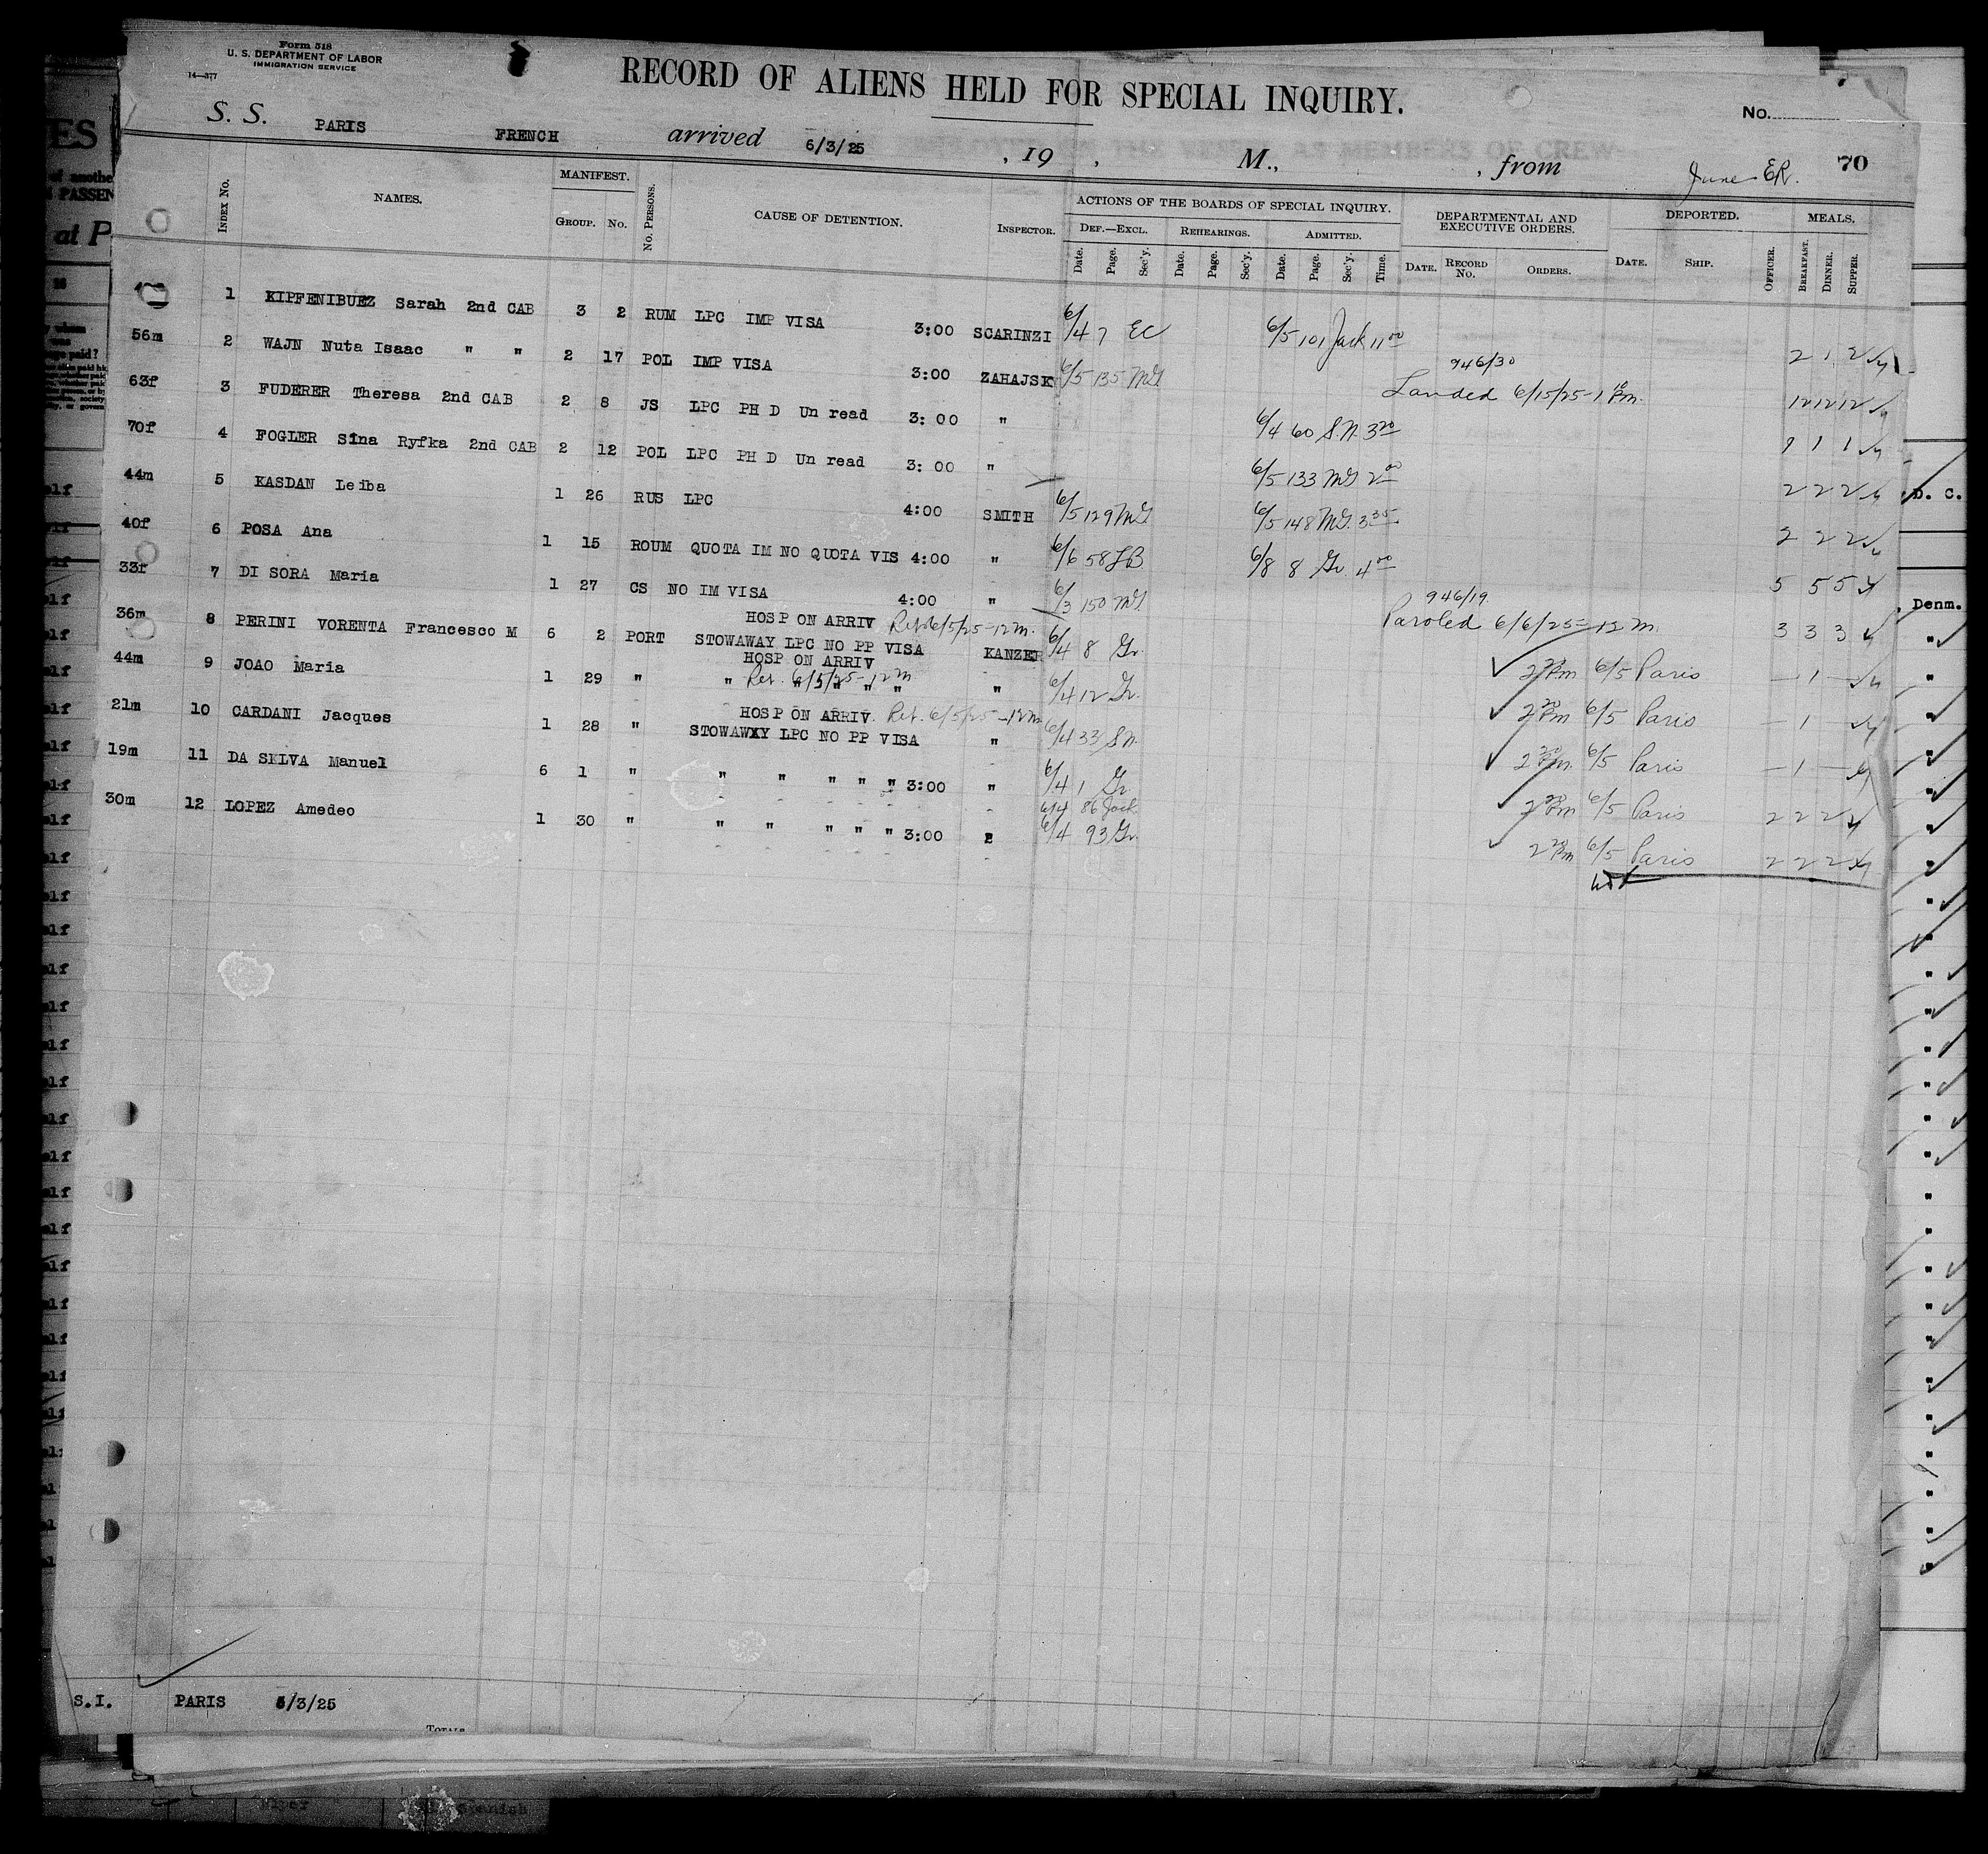 Form 518
U. S. DEPARTMENT OF LABOR
IMMIGRATION SERVICE
14—377
RECORD OF ALIENS HELD FOR SPECIAL INQUIRY.
No.
S. S. PARIS FRENCH arrived 6/3/25 , 19 , M., , from June ER. 70
INDEX No. NAMES. MANIFEST. GROUP. No. No. PERSONS. CAUSE OF DETENTION. INSPECTOR. ACTIONS OF THE BOARDS OF SPECIAL INQUIRY. DEPARTMENTAL AND EXECUTIVE ORDERS. DEPORTED. MEALS.
DEF.—EXCL. REHEARINGS. ADMITTED.
Date. Page. Sec'y. Date. Page. Sec'y. Date. Page. Sec'y. Time. DATE. RECORD No. ORDERS. DATE. SHIP. OFFICER. BREAKFAST. DINNER. SUPPER.
1 KIPFENIBUEZ Sarah 2nd CAB 3 2 RUM LPC IMP VISA 3:00 SCARINZI 6/4 7 EC 6/5 101 Jack 11 00 2 1 2
56m 2 WAJN Nuta Isaac " " 2 17 POL IMP VISA 3:00 ZAHAJSK 6/5 135 MG 946/30 Landed 6/15/25-1 10 Pm. 12 12 12
63f 3 FUDERER Theresa 2nd CAB 2 8 JS LPC PH D Un read 3:00 " 6/4 60 S.N. 3 20 1 1
70f 4 FOGLER Sina Ryfka 2nd CAB 2 12 POL LPC PH D Un read 3:00 " 6/5 133 MG 2 00 2 2 2
44m 5 KASDAN Leiba 1 26 RUS LPC 4:00 SMITH 6/5 129 MG 6/5 148 MG. 3 35 2 2 2
40f 6 POSA Ana 1 15 ROUM QUOTA IM NO QUOTA VIS 4:00 " 6/6 58 JB 6/8 8 Gr. 4 00 5 5 5
33f 7 DI SORA Maria 1 27 CS NO IM VISA 4:00 " 6/3 150 MG 946/19 Paroled 6/6/25-12 M. 3 3 3
HOSP ON ARRIV Ret. 6/5/25-12 m.
36m 8 PERINI VORENTA Francesco M 6 2 PORT STOWAWAY LPC NO PP VISA KANZER 6/4 8 Gr. 2 20 Pm 6/5 Paris — 1 —
HOSP ON ARRIV
44m 9 JOAO Maria 1 29 " " Ret. 6/5/25-12 m " " " " " 6/4 12 Gr. 2 20 Pm 6/5 Paris — 1
HOSP ON ARRIV. Ret. 6/5/25-12 m
21m 10 CARDANI Jacques 1 28 " STOWAWXY LPC NO PP VISA " 6/4 33 S N. 2 20 Pm. 6/5 Paris — 1 —
19m 11 DA SELVA Manuel 6 1 " " " " " " 3:00 " 6/4 1 Gr. 2 20 Pm 6/5 Paris 2 2 2
6/4 86 Jack
30m 12 LOPEZ Amedeo 1 30 " " " " " " 3:00 6/4 93 Gr. 2 20 Pm 6/5 Paris 2 2 2
D. C.
Denm.
S.I. PARIS 6/3/25
TOTALS
Spanish